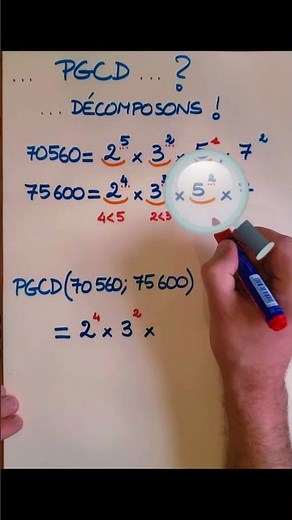 ... PGCD ... ?
... DÉCOMPOSONS !
70560 = 2^5 × 3^2 × 5 7^2
75600 = 2^4 × 3^3 × 5^2 ×
4<5 2<3
PGCD(70560; 75600)
= 2^4 × 3^2 ×